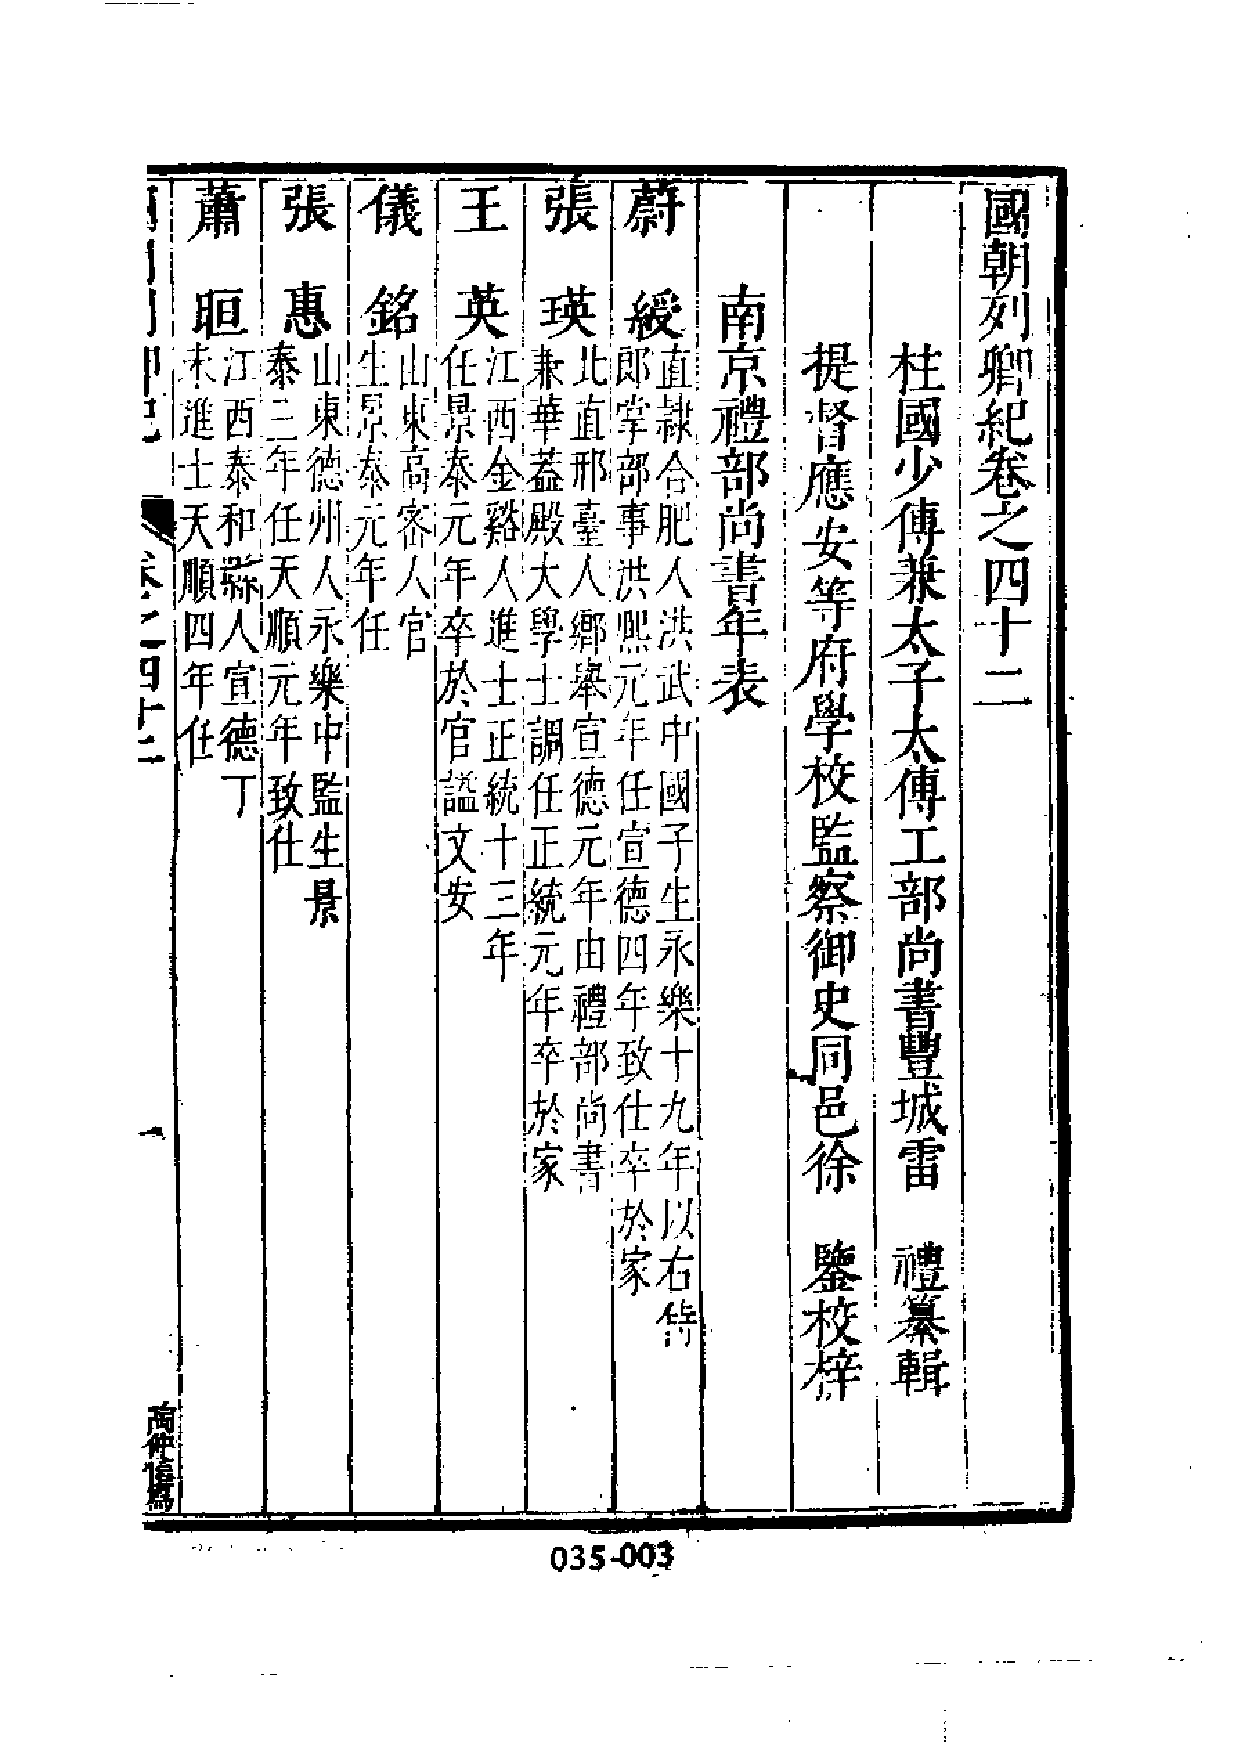 國朝列卿紀卷之四十二
柱國少傅兼太子太傅工部尚書豐城雷　禮纂輯
提督應安等府學校監察御史同邑徐　鑒校梓
南京禮部尚書年表
蔚　綬
直隸合肥人洪武中國子生永樂十九年以右侍
郎掌部事洪熙元年任宣德四年致仕卒於家
張　瑛
北直邢臺人鄉舉宣德元年由禮部尚書
兼華葢殿大學士調任正統元年卒於家
王　英
江西金谿人進士正統十三年
任景泰元年卒於官謚文安
儀　銘
山東高密人官
生景泰元年任
張　惠
山東德州人永樂中監生景
泰三年任天順元年致仕
蕭　晅
江西泰和縣人宣德丁
未進士天順四年任
卷之四十二
一
035-003